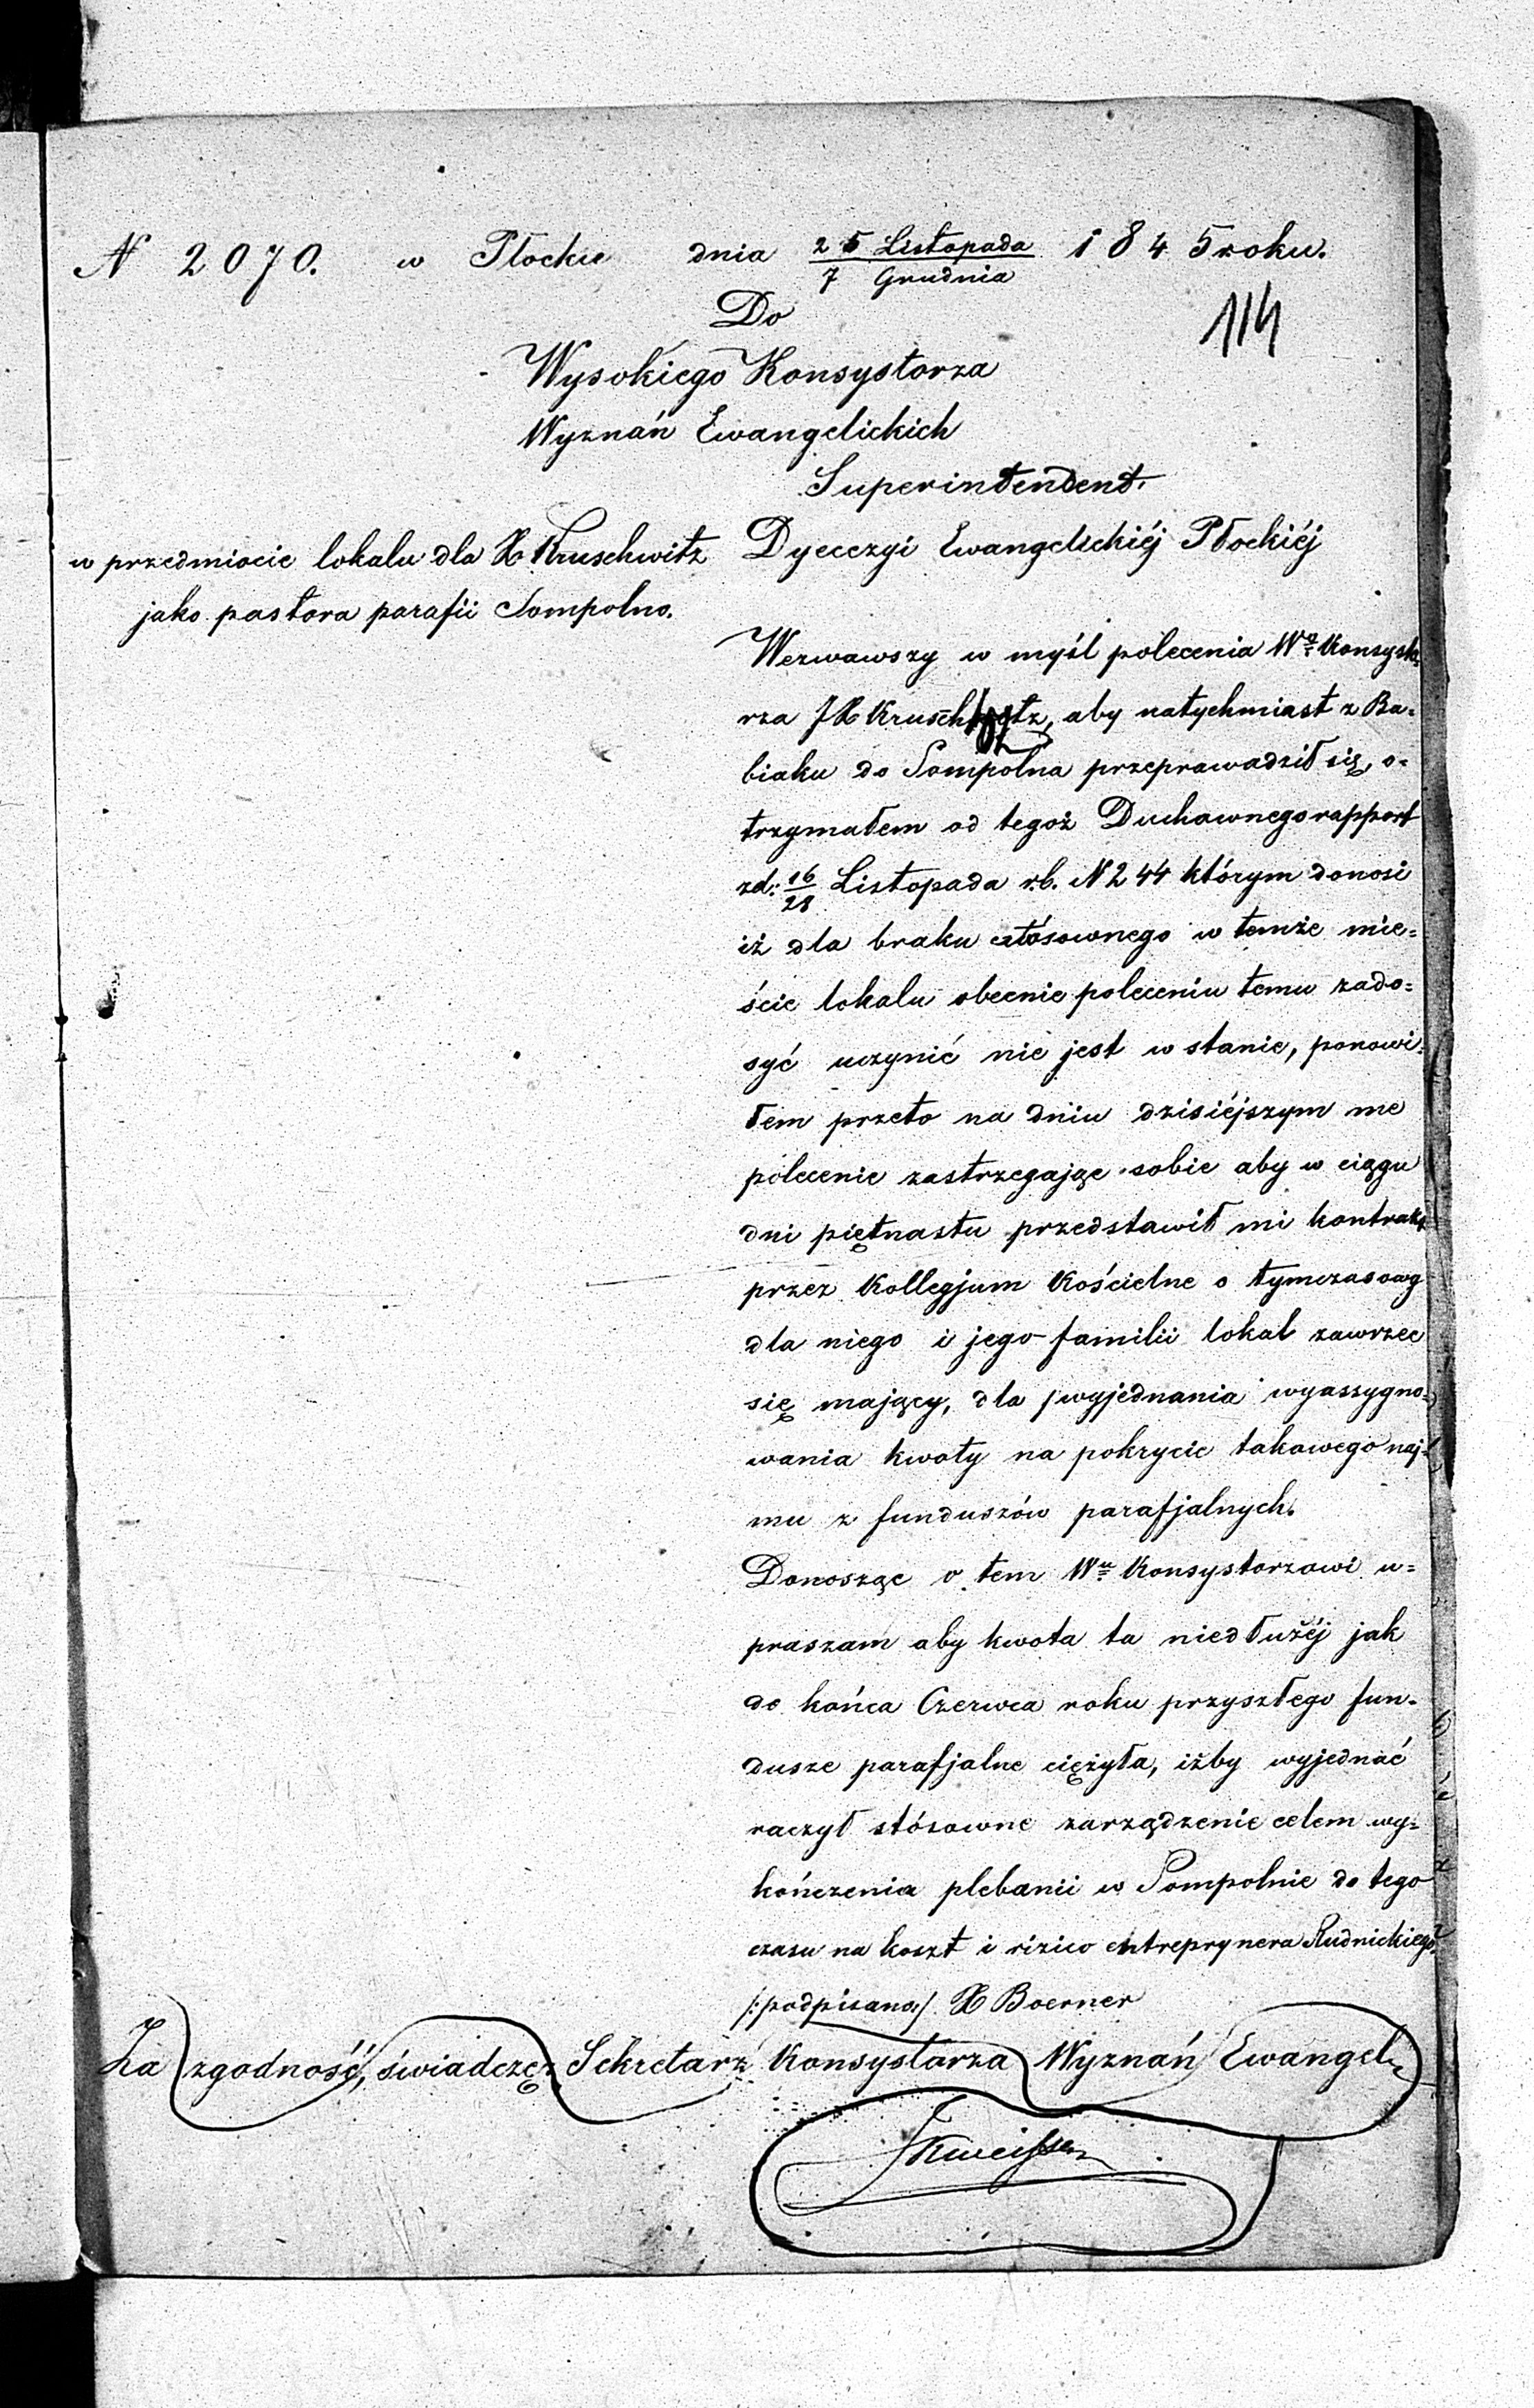 N 2070. w Płocku dnia 25 Listopada / 7 Grudnia 1845 roku.
114
Do
Wysokiego Konsystorza
Wyznań Ewangelickich
Superintendent
Dyecezyi Ewangelickiéj Płockiéj
w przedmiocie lokalu dla X Kruschwitz
jako pastora parafii Sompolno.
Wezwawszy w myśl polecenia Wº Konsysto
rza JX Kruschwitz, aby natychmiast z Ba-
biaku do Sompolna przeprawadził się, o-
trzymałem od tegoż Duchownego rapport
zd: 16/28 Listopada r.b. N 244 którym donosi
iż dla braku stósownego w temże mie=
ście lokalu obecnie poleceniu temu zado=
syć uczynić nie jest w stanie, ponowi=
łem przeto na dniu dzisiéjszym me
polecenie zastrzegając sobie aby w ciągu
dni piętnastu przedstawił mi kontrakt
przez Kollegjum Kościelne o tymczasowy
dla niego i jego familii lokal zawrzec
się mający, dla wyjednania wyassygno=
wania kwoty na pokrycie takowego naj=
mu z funduszów parafjalnych.
Donosząc o tem Wu Konsystorzowi u=
praszam aby kwota ta niedłużéj jak
do końca Czerwca roku przyszłego fun-
dusze parafjalne ciężyła, iżby wyjednać
raczył stósowne zarządzenie celem wy=
kończenia plebanii w Sompolnie do tego
czasu na koszt i rizico entreprynera Rudnickiego
/:podpisano:/ X Boerner
Za zgodność, świadczę: Sekretarz Konsystorza Wyznań Ewangel.